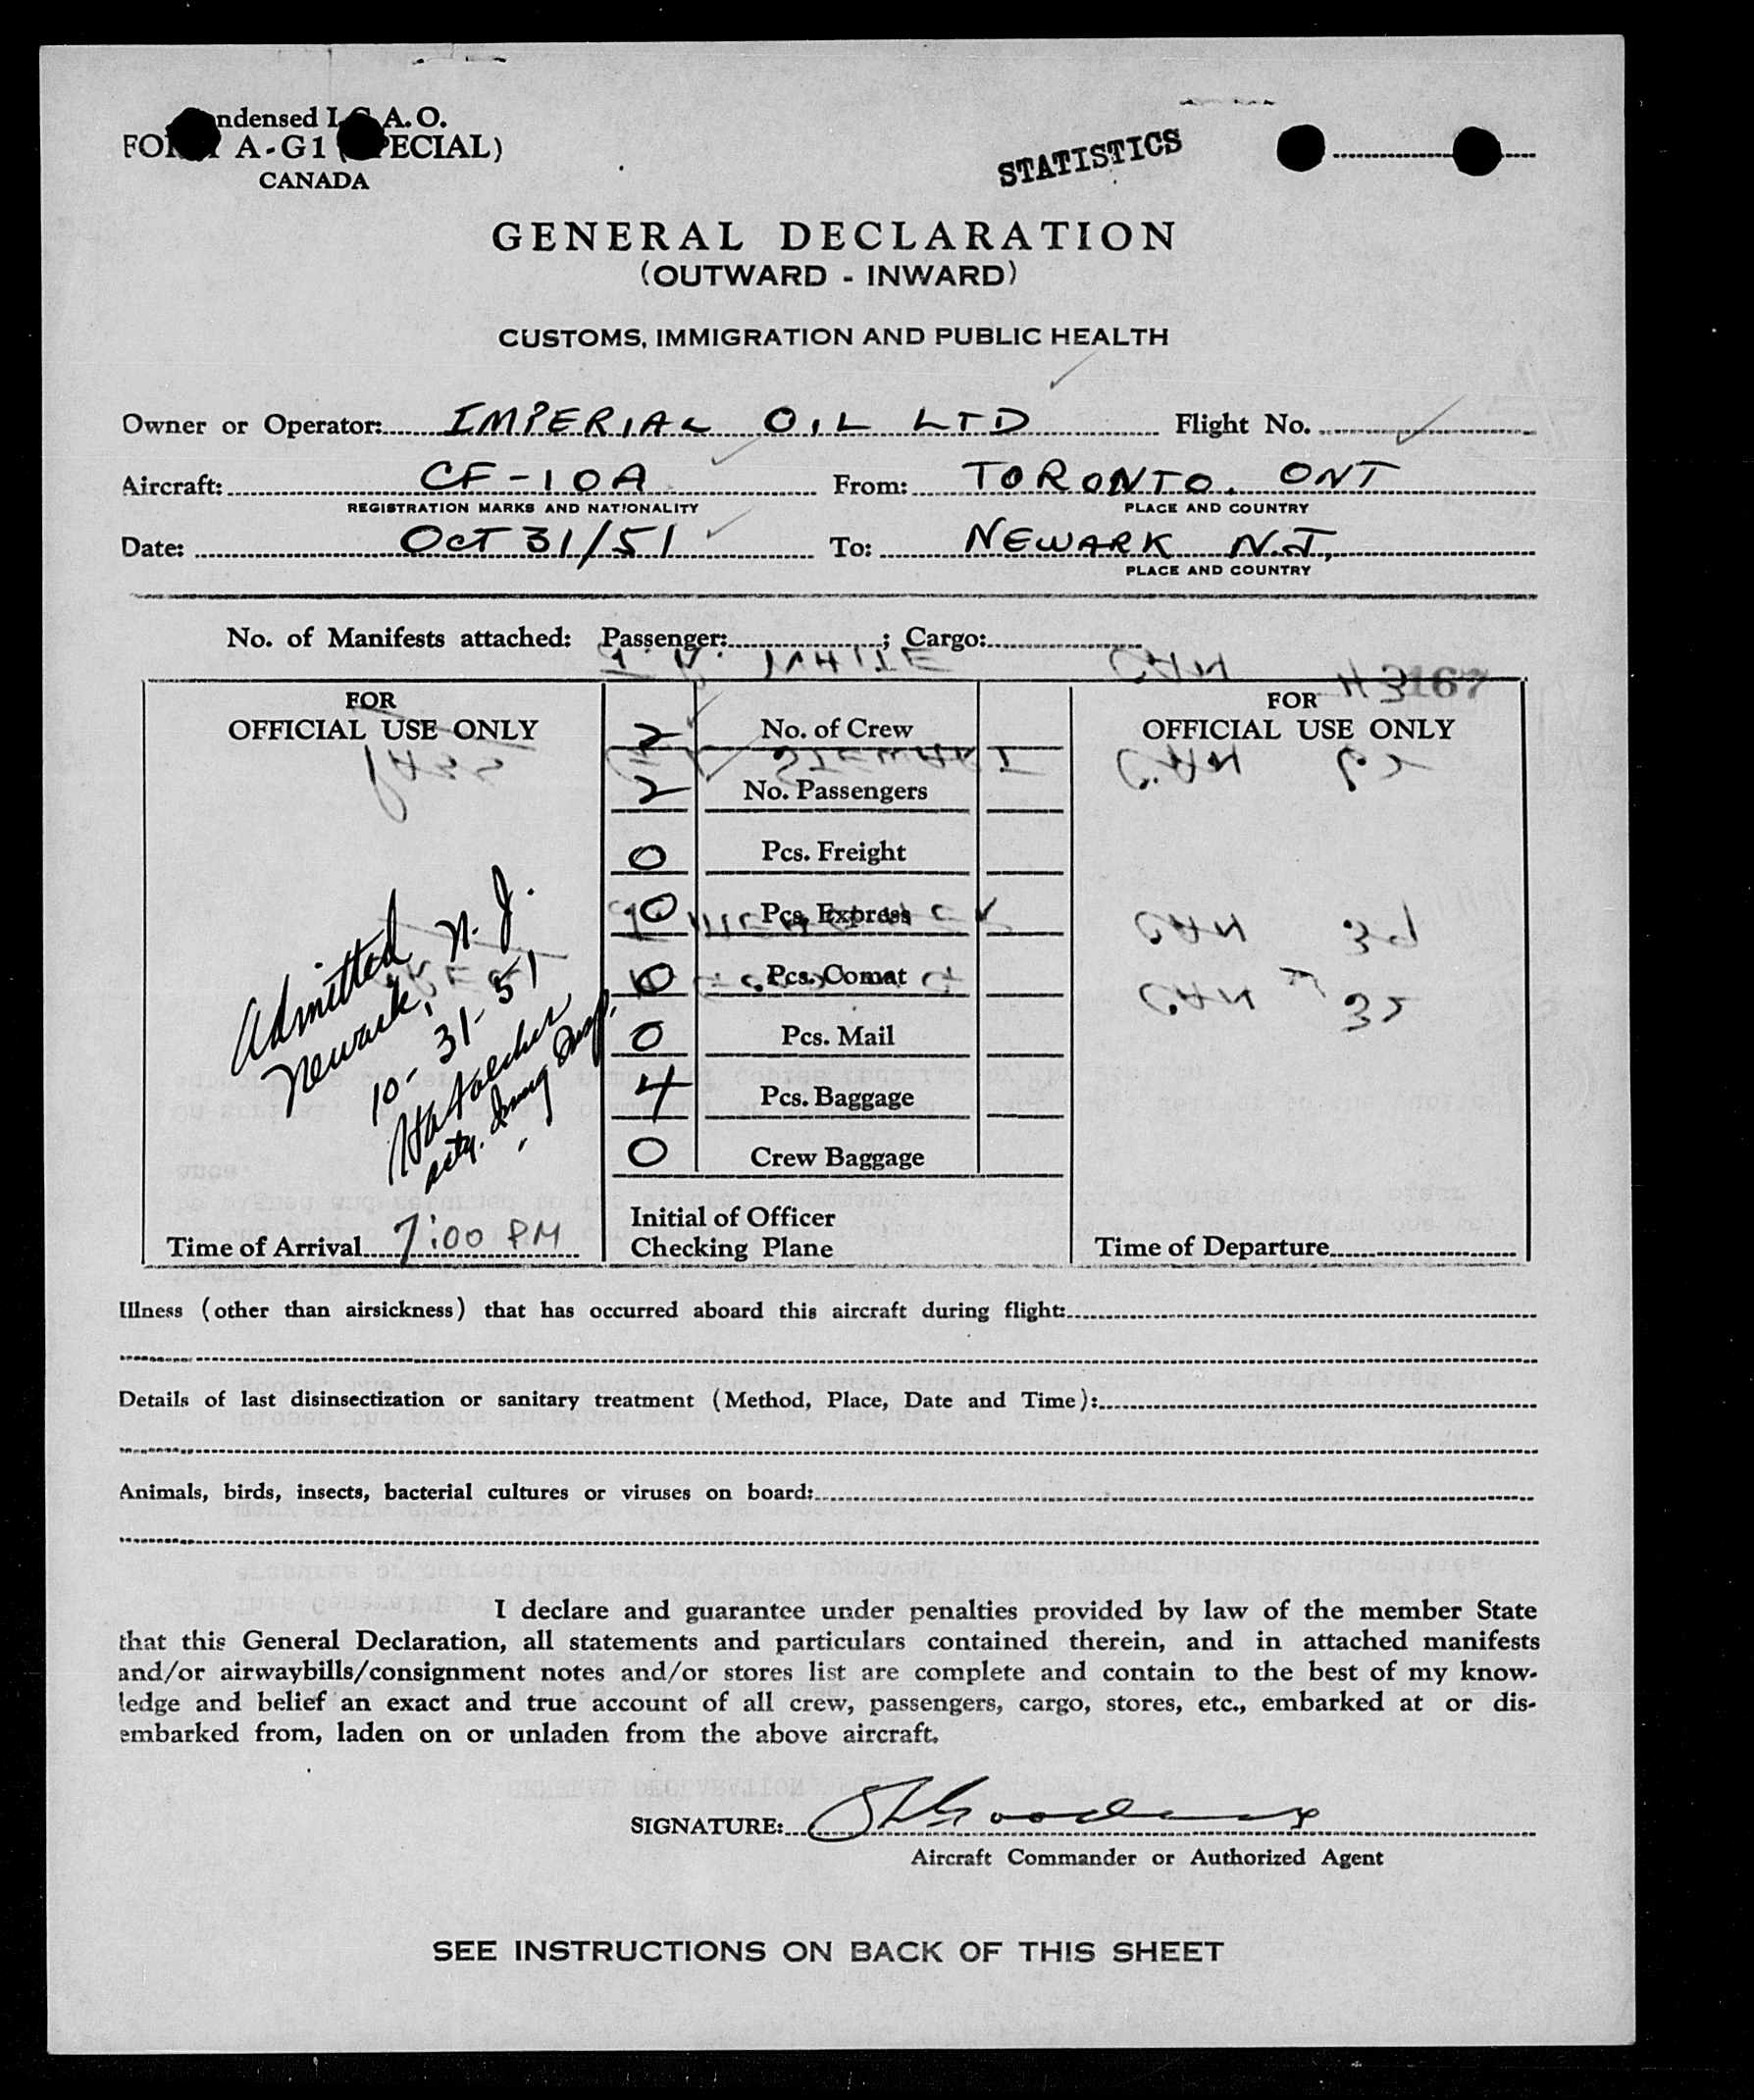 Condensed I.C.A.O.
FORM A-G1 (SPECIAL)
CANADA
STATISTICS
GENERAL DECLARATION
(OUTWARD - INWARD)
CUSTOMS, IMMIGRATION AND PUBLIC HEALTH
Owner or Operator: IMPERIAL OIL LTD Flight No.
Aircraft: CF-10A From: TORONTO. ONT
REGISTRATION MARKS AND NATIONALITY PLACE AND COUNTRY
Date: OCT 31/51 To: NEWARK N.J,
PLACE AND COUNTRY
No. of Manifests attached: Passenger: ; Cargo:
WHITE CAN
167
FOR
OFFICIAL USE ONLY
2 No. of Crew
FOR
OFFICIAL USE ONLY
STEWART CAN
2 No. Passengers
0 Pcs. Freight
0 Pcs. Express
CAN
0 Pcs. Comat
CAN
0 Pcs. Mail
4 Pcs. Baggage
0 Crew Baggage
Admitted
Newark, N.J.
10-31-51
Time of Arrival 7:00 PM
Initial of Officer
Checking Plane
Time of Departure
Illness (other than airsickness) that has occurred aboard this aircraft during flight:
Details of last disinsectization or sanitary treatment (Method, Place, Date and Time):
Animals, birds, insects, bacterial cultures or viruses on board:
I declare and guarantee under penalties provided by law of the member State
that this General Declaration, all statements and particulars contained therein, and in attached manifests
and/or airwaybills/consignment notes and/or stores list are complete and contain to the best of my know-
ledge and belief an exact and true account of all crew, passengers, cargo, stores, etc., embarked at or dis-
embarked from, laden on or unladen from the above aircraft.
SIGNATURE:
Aircraft Commander or Authorized Agent
SEE INSTRUCTIONS ON BACK OF THIS SHEET